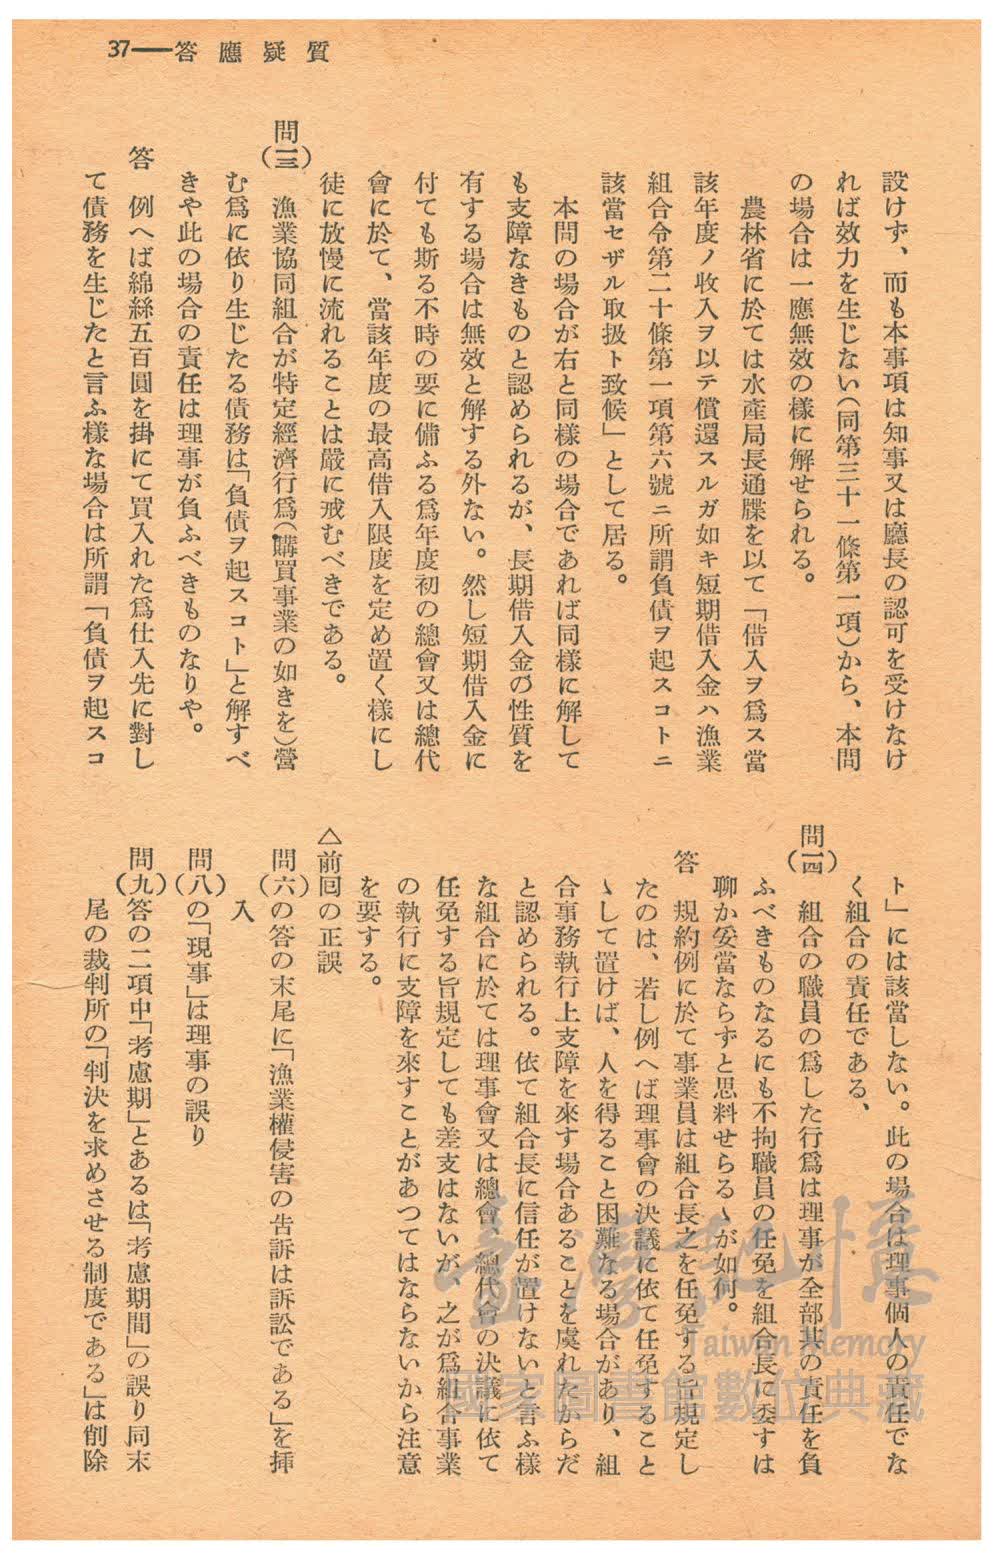 質疑應答——37
設けず、而も本事項は知事又は廳長の認可を受けなけ
れば效力を生じない(同第三十一條第一項)から、本問
の場合は一應無效の樣に解せられる。
農林省に於ては水產局長通牒を以て「借入ヲ爲ス當
該年度ノ收入ヲ以テ償還スルガ如キ短期借入金ハ漁業
組合令第二十條第一項第六號ニ所謂負債ヲ起スコトニ
該當セザル取扱ト致候」として居る。
本問の場合が右と同樣の場合であれば同樣に解して
も支障なきものと認められるが、長期借入金の性質を
有する場合は無效と解する外ない。然し短期借入金に
付ても斯る不時の要に備ふる爲年度初の總會又は總代
會に於て、當該年度の最高借入限度を定め置く樣にし
徒に放慢に流れることは嚴に戒むべきである。
問(一三) 漁業協同組合が特定經濟行爲(購買事業の如きを)營
む爲に依り生じたる債務は「負債ヲ起スコト」と解すべ
きや此の場合の責任は理事が負ふべきものなりや。
答 例へば綿絲五百圓を掛にて買入れた爲仕入先に對し
て債務を生じたと言ふ樣な場合は所謂「負債ヲ起スコ
ト」には該當しない。此の場合は理事個人の責任でな
く組合の責任である、
問(一四) 組合の職員の爲した行爲は理事が全部其の責任を負
ふべきものなるにも不拘職員の任免を組合長に委すは
聊か妥當ならずと思料せらるゝが如何。
答 規約例に於て事業員は組合長之を任免する旨規定し
たのは、若し例へば理事會の決議に依て任免すること
ゝして置けば、人を得ること困難なる場合があり、組
合事務執行上支障を來す場合あることを虞れたからだ
と認められる。依て組合長に信任が置けないと言ふ樣
な組合に於ては理事會又は總會、總代會の決議に依て
任免する旨規定しても差支はないが、之が爲組合事業
の執行に支障を來すことがあつてはならないから注意
を要する。
△前囘の正誤
問(六)の答の末尾に「漁業權侵害の告訴は訴訟である」を挿
入
問(八)の「現事」は理事の誤り
問(九)答の二項中「考慮期」とあるは「考慮期間」の誤り同末
尾の裁判所の「判決を求めさせる制度である」は削除
臺灣記憶
Taiwan Memory
國家圖書館數位典藏